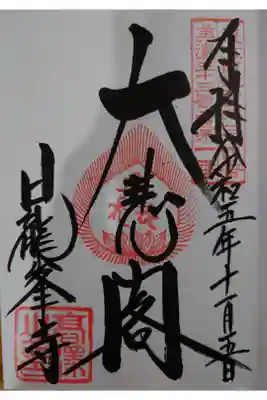 奉拝 令和五年十一月五日
大悲閣
日龍峯寺